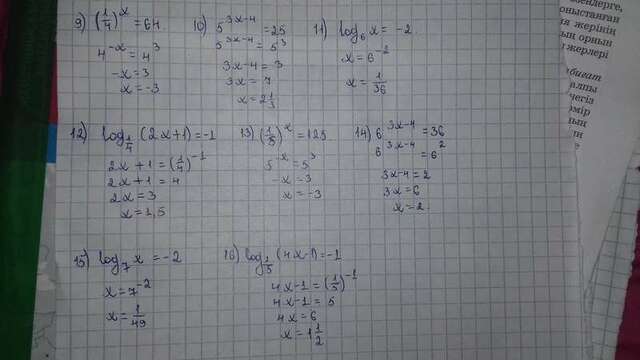 9) (1/4)^x = 64
4^-x = 4^3
-x = 3
x = -3
10) 5^(3x-4) = 125
5^(3x-4) = 5^3
3x-4 = 3
3x = 7
x = 2 1/3
11) log₆ x = -2
x = 6^-2
x = 1/36
12) log_1/4 (2x+1) = -1
2x+1 = (1/4)^-1
2x+1 = 4
2x = 3
x = 1,5
13) (1/5)^x = 125
5^-x = 5^3
-x = 3
x = -3
14) 6^(3x-4) = 36
6^(3x-4) = 6^2
3x-4 = 2
3x = 6
x = 2
15) log₇ x = -2
x = 7^-2
x = 1/49
16) log_1/5 (4x-1) = -1
4x-1 = (1/5)^-1
4x-1 = 5
4x = 6
x = 1 1/2
жерінің
орнын
жерлері